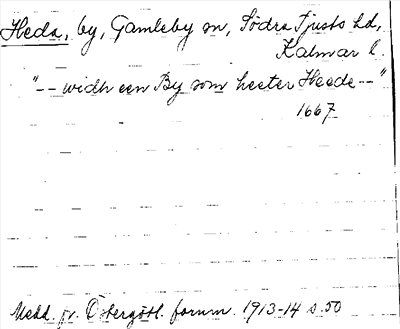 Heda, by, Gamleby sn, Södra Tjusts hd,
Kalmar l.
"-- widh een By som heeter Heede --"
1667
Medd. fr. Östergötl. fornm. 1913-14 s. 50